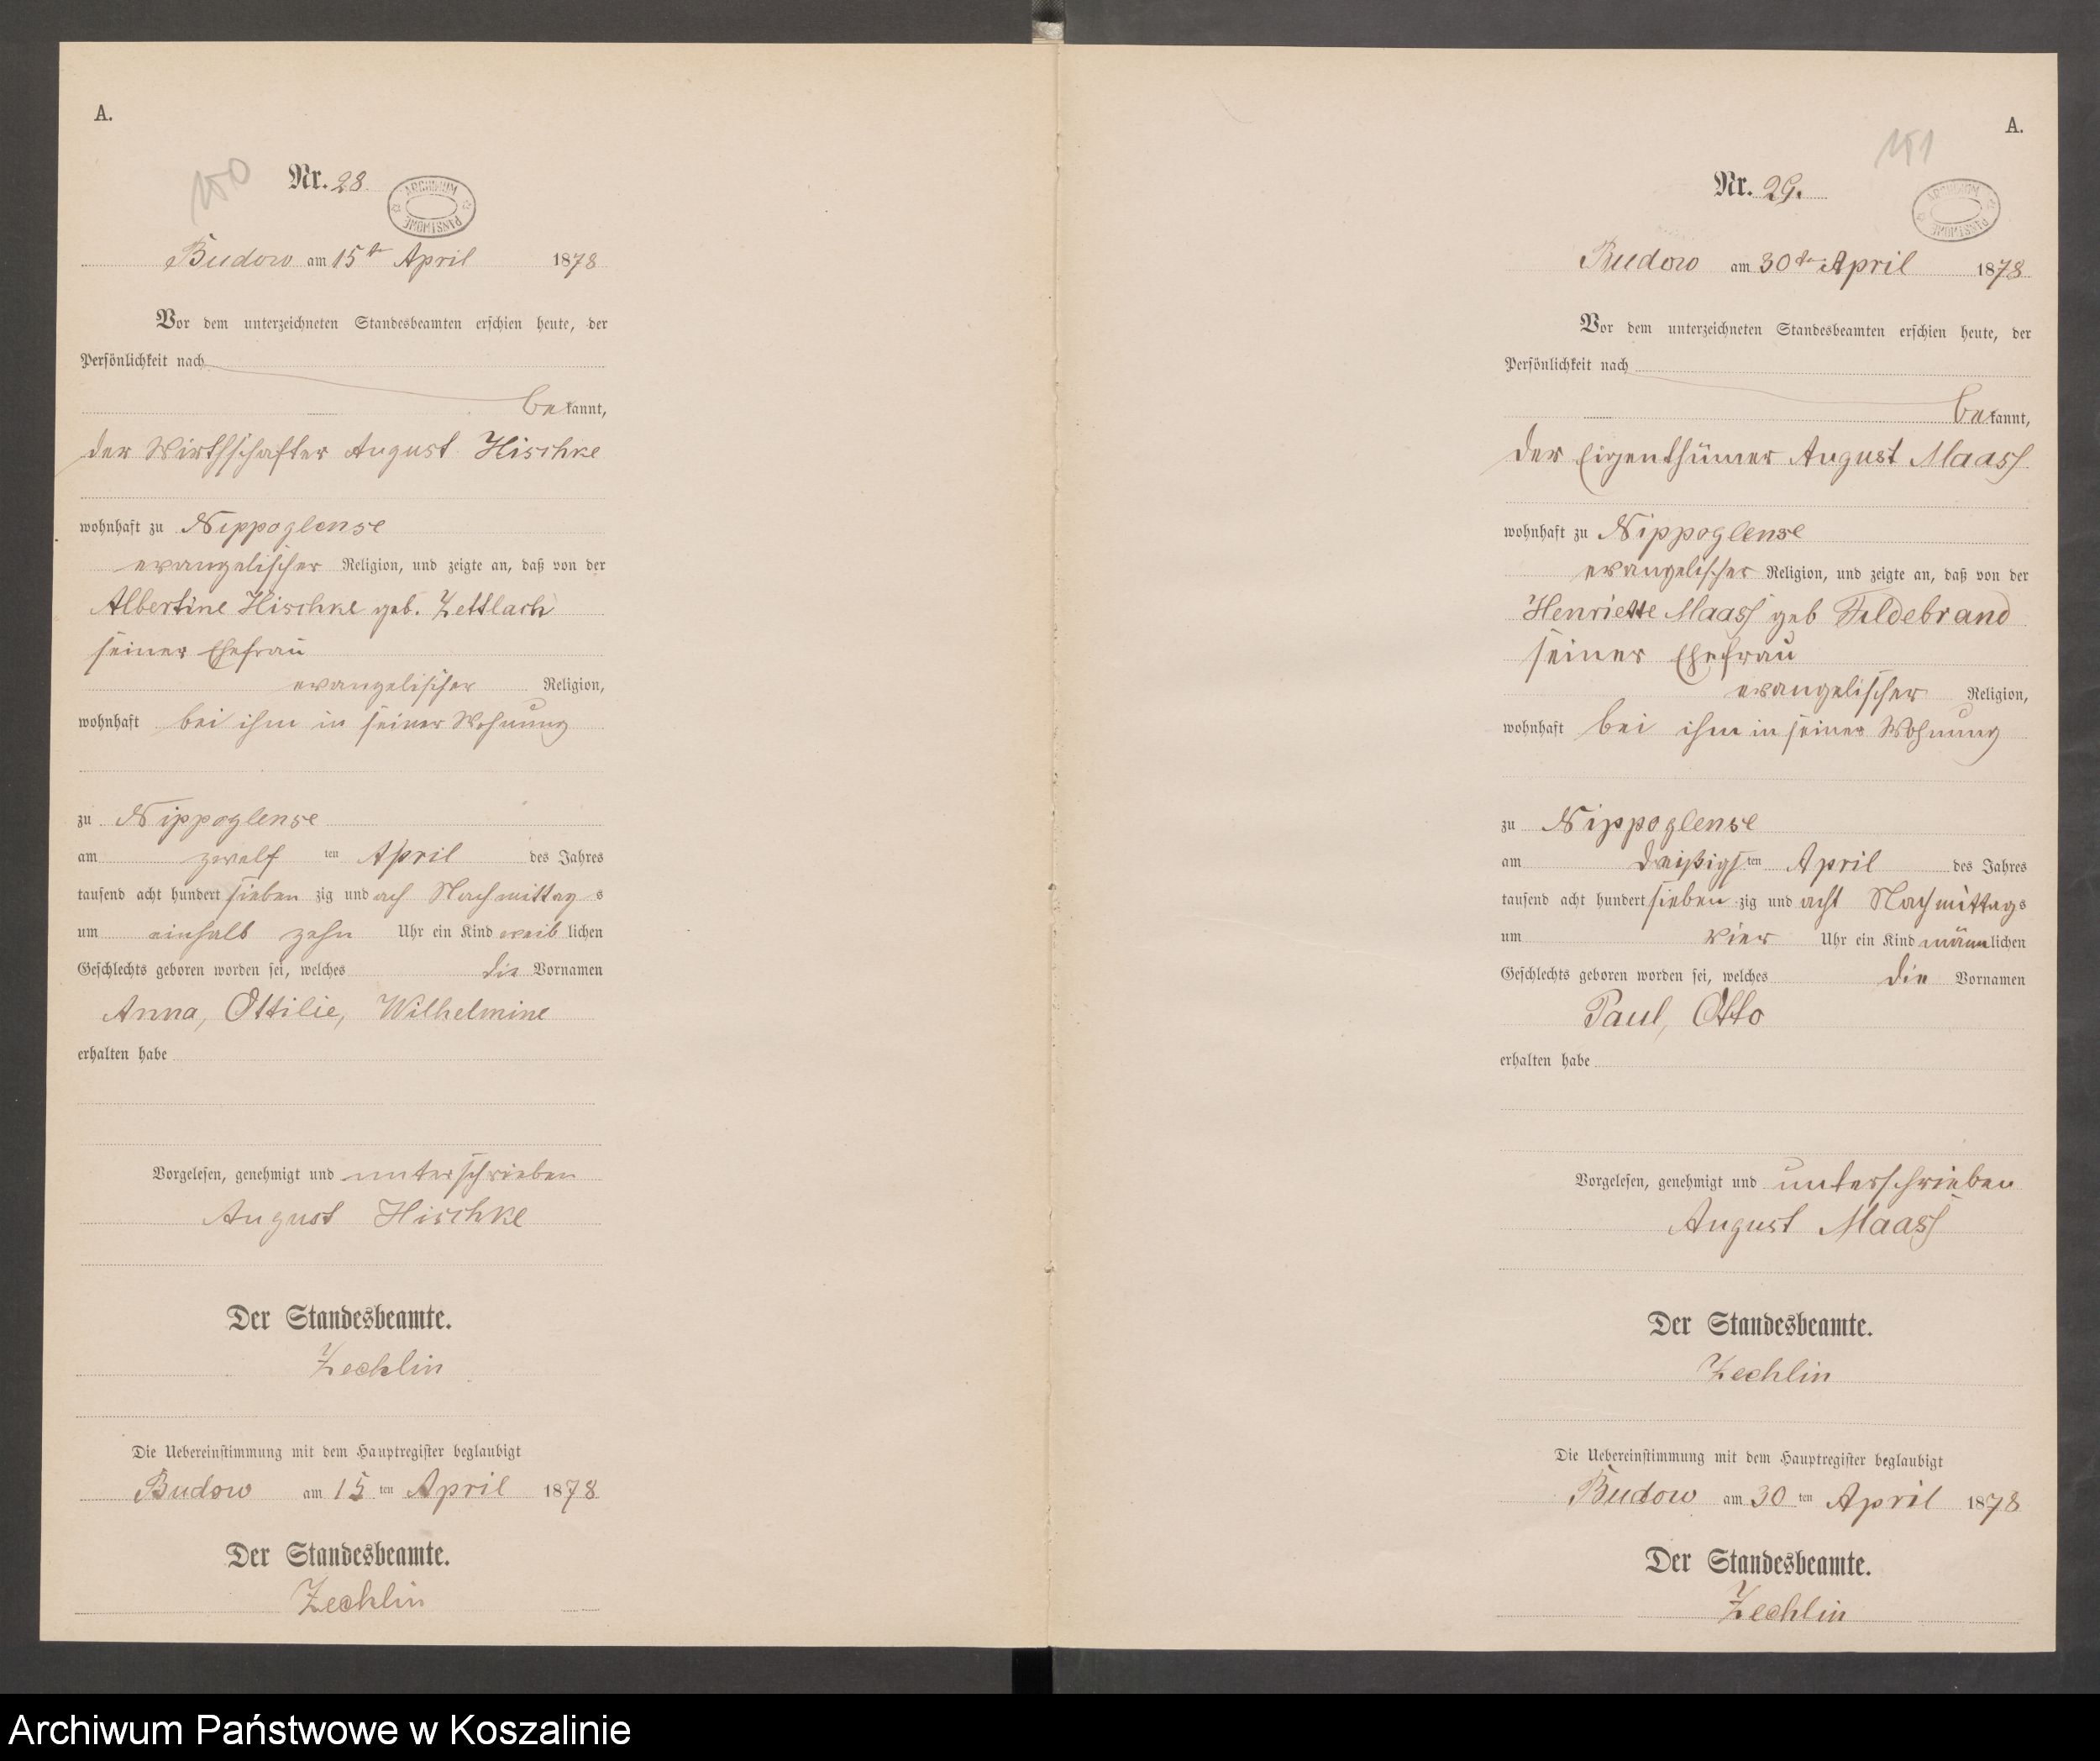 A.
150
Nr. 28
ARCHIWUM PAŃSTWOWE
Budow am 15te April 1878
Vor dem unterzeichneten Standesbeamten erschien heute, der
Persönlichkeit nach
bekannt,
der Wirthschafter August Hischke
wohnhaft zu Nippoglense
evangelischer Religion, und zeigte an, daß von der
Albertine Hischke geb. Zettlach
seiner Ehefrau
evangelischer Religion,
wohnhaft bei ihm in seiner Wohnung
zu Nippoglense
am zwölf ten April des Jahres
tausend acht hundert sieben zig und ach Nachmittag s
um einhalb zehn Uhr ein Kind weib lichen
Geschlechts geboren worden sei, welches die Vornamen
Anna, Ottilie, Wilhelmine
erhalten habe
Vorgelesen, genehmigt und unterschrieben
August Hischke
Der Standesbeamte.
Zechlin
Die Uebereinstimmung mit dem Hauptregister beglaubigt
Budow am 15 ten April 1878
Der Standesbeamte.
Zechlin
A.
151
Nr. 29.
ARCHIWUM PAŃSTWOWE
Budow am 30te April 1878
Vor dem unterzeichneten Standesbeamten erschien heute, der
Persönlichkeit nach
bekannt,
der Eigenthümer August Maass
wohnhaft zu Nippoglense
evangelischer Religion, und zeigte an, daß von der
Henriette Maass geb
seiner Ehefrau
evangelischer Religion,
wohnhaft bei ihm in seiner Wohnung
zu Nippoglense
am dreißigsten April des Jahres
tausend acht hundert sieben zig und acht Nachmittags
um vier Uhr ein Kind männlichen
Geschlechts geboren worden sei, welches die Vornamen
Paul, Otto
erhalten habe
Vorgelesen, genehmigt und unterschrieben
August Maass
Der Standesbeamte.
Zechlin
Die Uebereinstimmung mit dem Hauptregister beglaubigt
Budow am 30 ten April 1878
Der Standesbeamte.
Zechlin
Archiwum Państwowe w Koszalinie